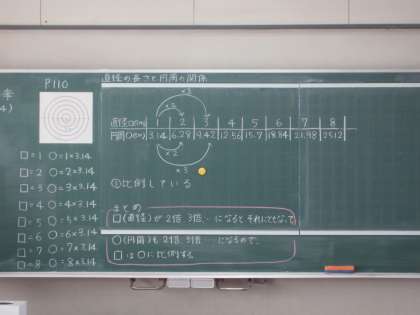 P110
直径の長さと円周の関係
×3
×2
直径□(cm) 1 2 3 4 5 6 7 8
円周○(cm) 3.14 6.28 9.42 12.56 15.7 18.84 21.98 25.12
×2
×3
比例している
まとめ
□(直径)が2倍、3倍…になると、それにともなって
○(円周)も2倍、3倍…になるので、
□は○に比例する。
□=1 ○=1×3.14
□=2 ○=2×3.14
□=3 ○=3×3.14
□=4 ○=4×3.14
□=5 ○=5×3.14
□=6 ○=6×3.14
□=7 ○=7×3.14
□=8 ○=8×3.14